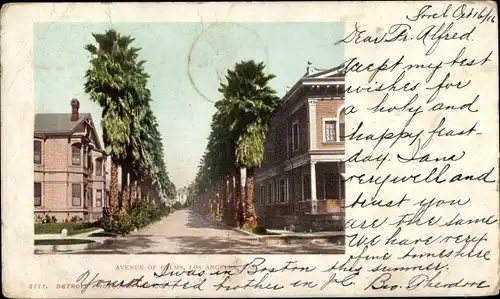 Torch Oct 16/16
Dear Fr. Alfred.
Accept my best
wishes for
a holy and
happy feast-
day. I am
very well and
trust you
are the same
We have very
fine times here
this summer.
AVENUE OF PALMS, LOS ANGELES, CAL.
8711. DETROIT
Yours devoted brother in
I was in Boston
Bro. Theodore